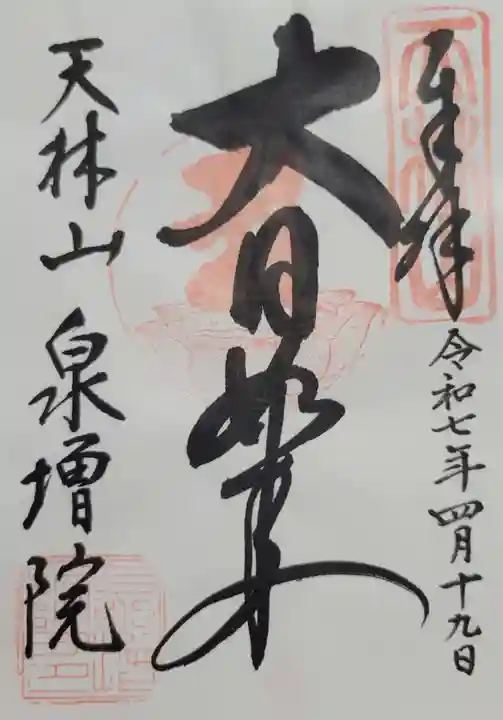 奉拝
令和七年四月十九日
大日如来
天林山 泉増院